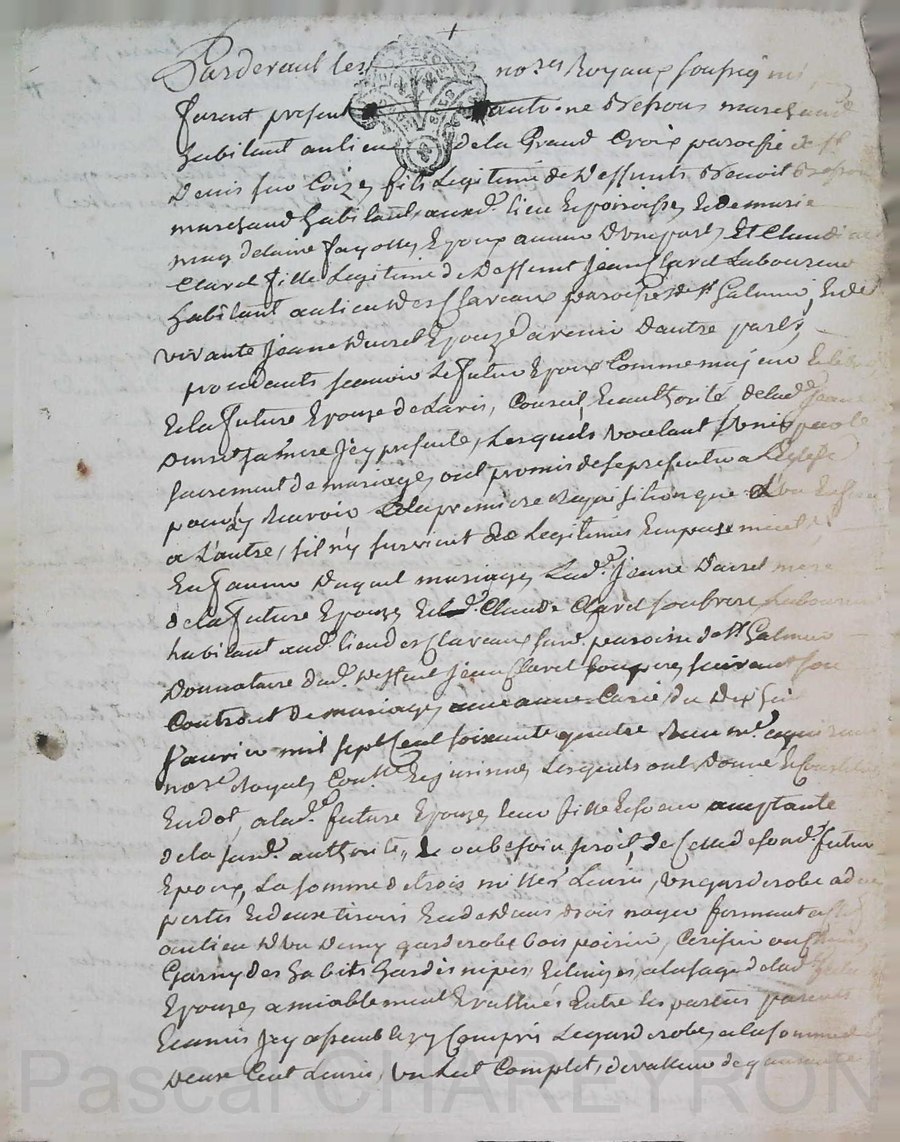 Pardevant les no.res Royaux soussignés
furent present antoine marchand
habitant au lieu de la Grand Croix paroisse de st
Denis sur Coize, fils Legitime de Deffunts Benoit
marchand habitant audt. lieu et paroisse, Et de marie
magdelaine fayolle, Epoux avenir D'une part, Et Claudine
Clavel fille Legitime de Deffunt Jean Clavel Laboureur
habitant au lieu des Claveaux paroisse de st Galmier, Et de
vivante Jeanne Epouze avenir D'autre part,
procedants scavoir Le futur Epoux Comme majeur Et libre
Et la future Epouze de L'avis, Conseil, Et authorité de ladte. Jeanne
sa mere Icy presente, Lesquels voulant venir
sacrement de mariage, ont promis de se presenter a L'eglise
pour y recevoir a La premiere requisition que L'un En fera
a L'autre, s'il n'y survient de Legitimes Empeschement
En faveur Duquel mariage, Ladte. Jeanne mere
de la future Epouze, Et Claude Clavel son frere Laboureur
habitant audt. lieu des Clavaux susd. paroisse de st. Galmier
Donnataire dudt. Deffunt Jean Clavel son pere, suivant son
Contract de mariage, avec anne du Dix huit
fauvrier mil sept Cent soixante quatre Receu me.
no.re Royal, Lesquels ont Donné Et Constitué
En dot, a ladte. future Epouze, Leur fille Et soeur acceptante
de la susdte. authorité, Et ou besoin seroit, de Celle de son dt. futur
Epoux, La somme de trois milles Livres, un garderobe a deux
portes Et deux tiroirs En dedans Bois noyer fermant a clef
au lieu D'un Demy garderobe bois poirier, Cerisier ou
Garny des habits hardes nipes, Et linges, a l'usage de ladte. future
Epouze, amiablement Evallués Entre les parties parents
Et amis Icy assemblés y Compris Le garderobe, a la somme de
Deux Cent Livres, un Lict Complet, de valleur de quarante
Pascal CHAREYRON